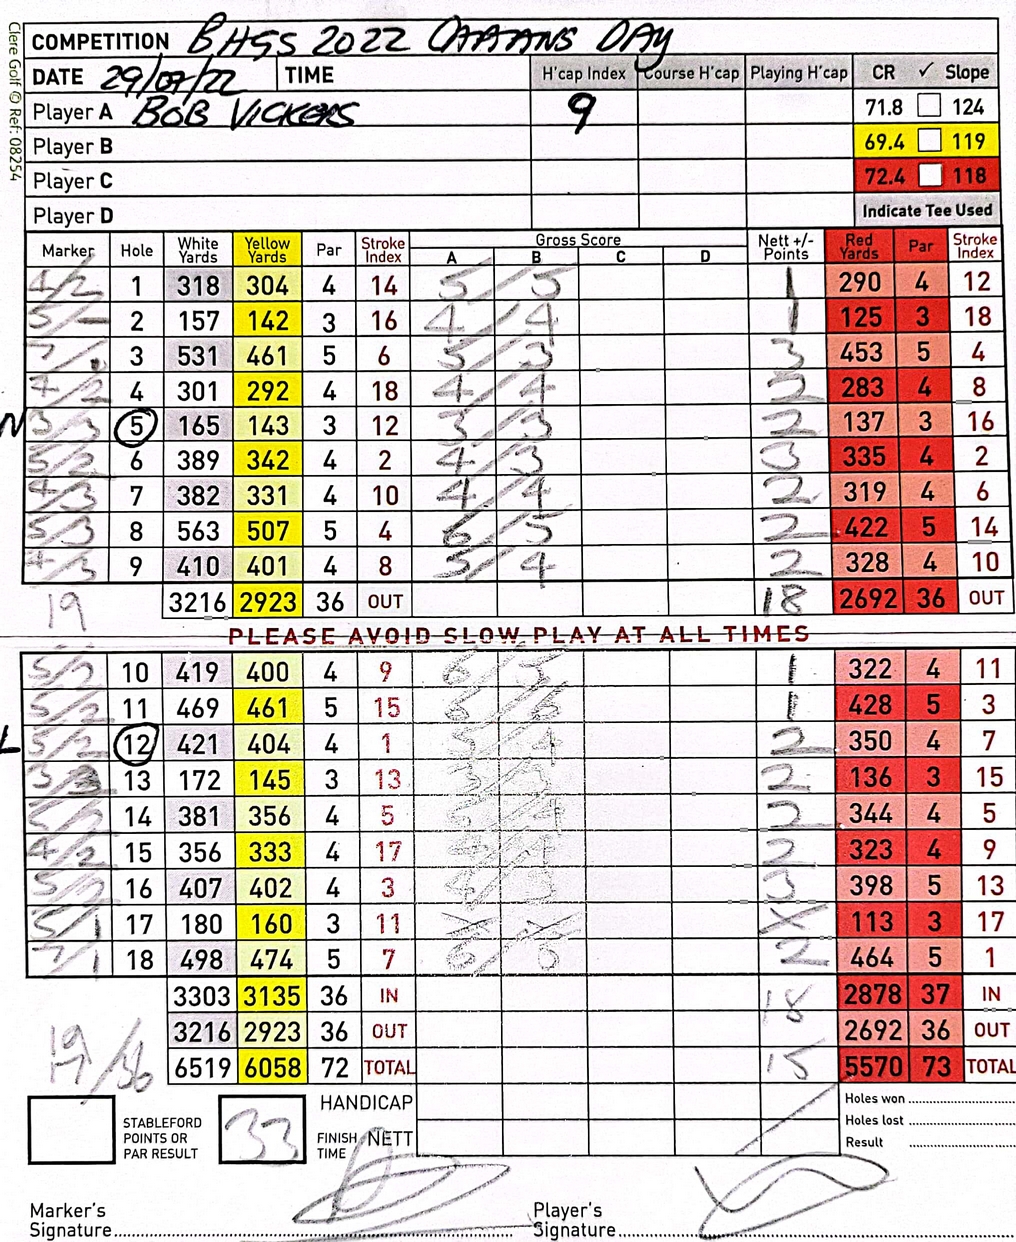 COMPETITION BHGS 2022 CAPTAINS DAY
DATE 29/07/22 TIME H'cap Index Course H'cap Playing H'cap CR ✓ Slope
Player A BOB VICKERS 9 71.8 124
Player B 69.4 119
Player C 72.4 118
Player D Indicate Tee Used
Clere Golf © Ref: 08254
Marker Hole White Yards Yellow Yards Par Stroke Index Gross Score A B C D Nett +/- Points Red Yards Par Stroke Index
4/2 1 318 304 4 14 5/5 1 290 4 12
5/- 2 157 142 3 16 4/4 1 125 3 18
3 531 461 5 6 5/3 3 453 5 4
4/2 4 301 292 4 18 4/4 2 283 4 8
N 3/3 5 165 143 3 12 3/3 2 137 3 16
5/2 6 389 342 4 2 4/3 3 335 4 2
4/3 7 382 331 4 10 4/4 2 319 4 6
5/3 8 563 507 5 4 6/5 2 422 5 14
4/3 9 410 401 4 8 5/4 2 328 4 10
19 3216 2923 36 OUT 18 2692 36 OUT
PLEASE AVOID SLOW PLAY AT ALL TIMES
10 419 400 4 9 6/5 1 322 4 11
5/2 11 469 461 5 15 6/6 1 428 5 3
L 5/2 12 421 404 4 1 5/4 2 350 4 7
13 172 145 3 13 3/3 2 136 3 15
14 381 356 4 5 2 344 4 5
4/2 15 356 333 4 17 2 323 4 9
16 407 402 4 3 4/3 3 398 5 13
5/1 17 180 160 3 11 X/X X 113 3 17
7/1 18 498 474 5 7 2 464 5 1
3303 3135 36 IN 18 2878 37 IN
3216 2923 36 OUT 2692 36 OUT
19 17/36 6519 6058 72 TOTAL 15 5570 73 TOTAL
HANDICAP
NETT
STABLEFORD POINTS OR PAR RESULT
33
FINISH TIME
Holes won
Holes lost
Result
Marker's Signature
Player's Signature